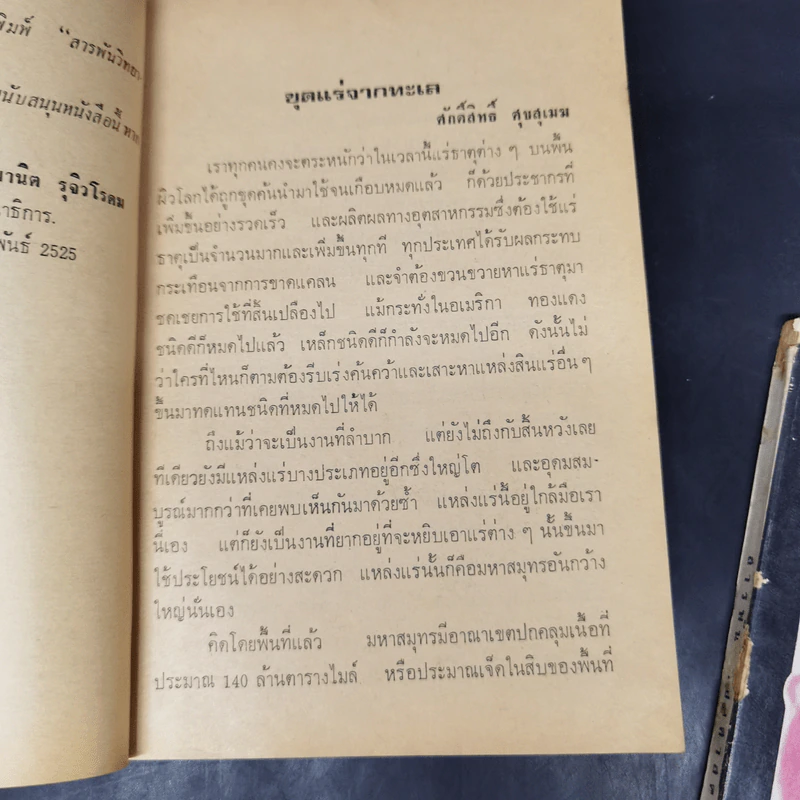 พิมพ์ “สารพันวิทยา
นับสนุนหนังสือนี้ หาก
านิต รุจิวโรดม
าธิการ.
พันธ์ 2525
ขุดแร่จากทะเล
ศักดิ์สิทธิ์ สุขสุเมฆ
เราทุกคนคงจะตระหนักว่าในเวลานี้แร่ธาตุต่าง ๆ บนพื้น
ผิวโลกได้ถูกขุดค้นนำมาใช้จนเกือบหมดแล้ว ก็ด้วยประชากรที่
เพิ่มขึ้นอย่างรวดเร็ว และผลิตผลทางอุตสาหกรรมซึ่งต้องใช้แร่
ธาตุเป็นจำนวนมากและเพิ่มขึ้นทุกที ทุกประเทศได้รับผลกระทบ
กระเทือนจากการขาดแคลน และจำต้องขวนขวายหาแร่ธาตุมา
ชดเชยการใช้ที่สิ้นเปลืองไป แม้กระทั่งในอเมริกา ทองแดง
ชนิดดีก็หมดไปแล้ว เหล็กชนิดดีก็กำลังจะหมดไปอีก ดังนั้นไม่
ว่าใครที่ไหนก็ตามต้องรีบเร่งค้นคว้าและเสาะหาแหล่งสินแร่อื่น ๆ
ขึ้นมาทดแทนชนิดที่หมดไปให้ได้
ถึงแม้ว่าจะเป็นงานที่ลำบาก แต่ยังไม่ถึงกับสิ้นหวังเลย
ทีเดียวยังมีแหล่งแร่บางประเภทอยู่อีกซึ่งใหญ่โต และอุดมสม-
บูรณ์มากกว่าที่เคยพบเห็นกันมาด้วยซ้ำ แหล่งแร่นี้อยู่ใกล้มือเรา
นี่เอง แต่ก็ยังเป็นงานที่ยากอยู่ที่จะหยิบเอาแร่ต่าง ๆ นั้นขึ้นมา
ใช้ประโยชน์ได้อย่างสะดวก แหล่งแร่นั้นก็คือมหาสมุทรอันกว้าง
ใหญ่นั่นเอง
คิดโดยพื้นที่แล้ว มหาสมุทรมีอาณาเขตปกคลุมเนื้อที่
ประมาณ 140 ล้านตารางไมล์ หรือประมาณเจ็ดในสิบของพื้นที่